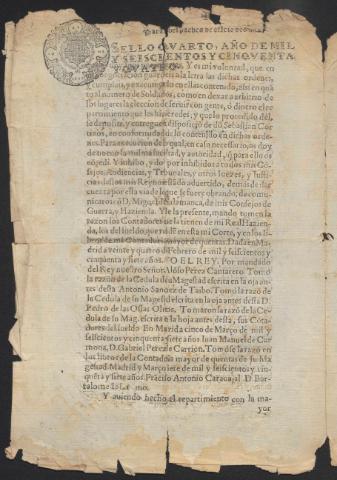 SELLO QVARTO, AÑO DE MIL
Y SEISCIENTOS Y CINQVENTA
Y QVATRO.
Y es mi voluntad, que en
guardeis a la letra las dichas ordenes,
y cumplais, y executeis lo en ellas contenido, assi en quã
to al numero de Soldados, como en dexar a arbitrio de
los lugares la eleccion de servir con gente, ò dinero
que hizieredes; y que lo procedido dèl,
se deposite, y entregue a disposicion de dõ Sebastian Cor
tinos, en conformidad de lo contenido en dichas orde-
nes. Para execucion de lo qual, en caso necessario, os doy
de nuevo la misma facultad, y autoridad, y para ello os
concedì. Y inhibo, y doy por inhibidos a todos mis Cõ
sejos, Audiencias, y Tribunales, y otros Iuezes, y Iusti-
cias destos mis Reynos
cuenta por esta via de lo que se fuere obrando, co
Miguel de Salamanca, de mis Consejos de
Guerra, y Hazienda. Y de la presente, mando tomen la
razon los Contadores que la tienen de mi Real Hazien-
da, los del sueldo que residen en esta mi Corte, y en los li-
bros de mi Contaduria mayor de quentas. Dada en Ma-
drid a veinte y quatro de Febrero de mil y seiscientos y
cinquenta y siete años. YO EL REY. Por mandado
del Rey nuestro Señor. Aloso Perez Cantarero. Tomò
la razon de la Cedula de su Magestad escrita en la oja an-
tes desta Antonio Sanchez de Taibo. Tomò la razõ de
la Cedula de su Magestad escrita en la oja antes desta D.
Pedro de las Ossas Olitos. Tomaron la razõ de la Ce-
dula de su Mag. escrita en la hoja antes desta, sus Cota-
dores del sueldo. En Madrid cinco de Março de mil y
seiscientos y cinquenta y siete años. Iuan Manuel de Car
mona, D. Gabriel Perez de Carrion. Tomose la razõ en
los libros de la Contaduria mayor de quentas de su Ma
gestad. Madrid y Março siete de mil y seiscientos y cin-
quenta y siete años. Frãcisco Antonio Caravajal. D. Bar-
tolome
Y aviendo hecho el repartimiento con la ma-
yor